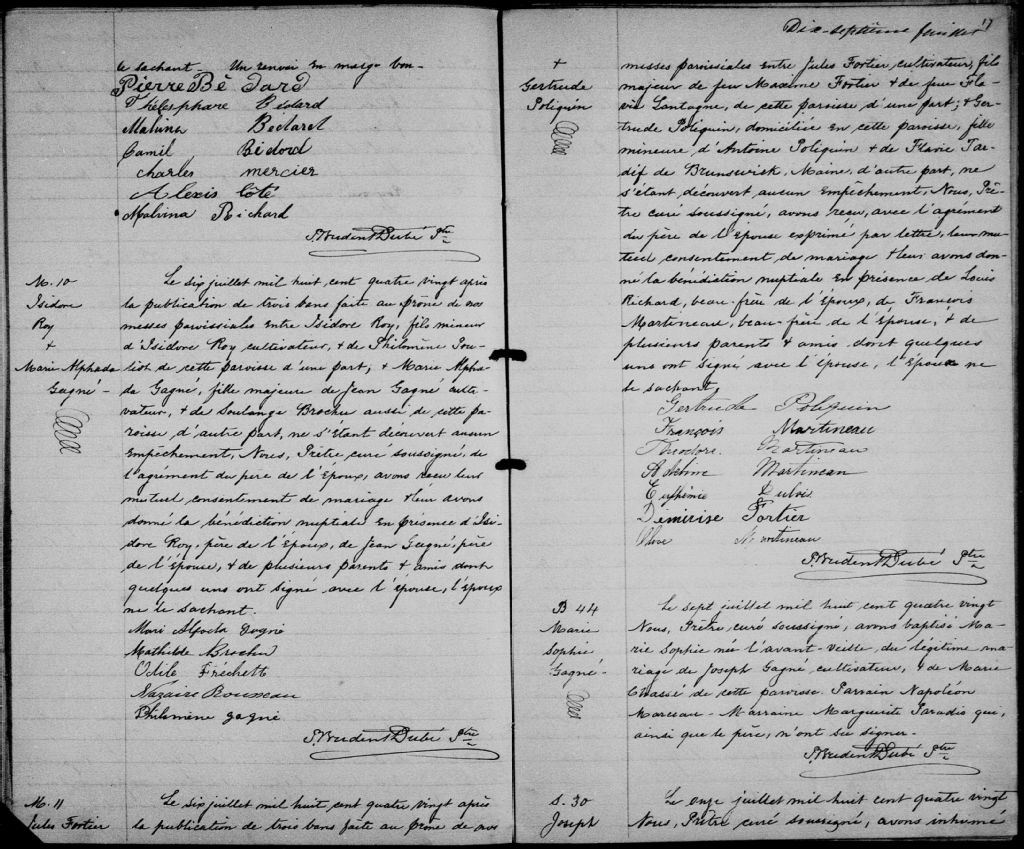 le sachant. Un renvoi en marge bon.
Pierre Bédard
Thélesphore Bédard
Malvina Bédard
Camil Bédard
Charles Mercier
Alexis Côté
Malvina Richard
P. Prudent Dubé Ptre
M. 10
Isidore
Roy
+
Marie Alphéda
Gagné -
Le six juillet mil huit cent quatre vingt après
la publication de trois bans faite au prône de nos
messes paroissiales entre Isidore Roy, fils mineur
d'Isidore Roy cultivateur, & de Philomène Pou-
liot de cette paroisse d'une part, & Marie Alphé-
da Gagné, fille majeure de Jean Gagné culti-
vateur, & de Soulange Brochu aussi de cette pa-
roisse d'autre part, ne s'étant découvert aucun
Empêchement, Nous, Prêtre curé soussigné, de
l'agrément du père de l'Epoux, avons recu leur
mutuel consentement de mariage & leur avons
donné la bénédiction nuptiale En présence d'Isi-
dore Roy, père de l'Epoux, de Jean Gagné, père
de l'épouse, & de plusieurs parents & amis dont
quelques uns ont signé avec l'épouse, l'époux
ne le sachant.
Mari Gagné
Mathilde Brochu
Odile Fréchett
Nazaire Rousseau
Philomène gagné
P. Prudent Dubé Ptre
M. 11
Jules Fortier
Le six juillet mil huit cent quatre vingt après
la publication de trois bans faite au prône de nos
17
Dix-septième feuillet
+
Gertrude
Poliquin
messes paroissiales entre Jules Fortier, cultivateur, fils
majeur de feu Maxime Fortier & de feu Fla-
vie Lantagne, de cette paroisse d'une part; & Ger-
trude Poliquin, domiciliée en cette paroisse, fille
mineure d'Antoine Poliquin & de Flavie Tar-
dif de Brunswick, Maine, d'autre part, ne
s'étant découvert aucun Empêchement, Nous, Prê-
tre curé soussigné, avons recu, avec l'agrément
du père de l'épouse exprimé par lettre, leur mu-
tuel consentement de mariage & leur avons don-
né la bénédiction nuptiale En présence de Louis
Richard, beau-frère de l'époux, de François
Martineau, beau-frère de l'épouse, & de
plusieurs parents & amis dont quelques
uns ont signé avec l'épouse, l'époux ne
le sachant,
Gertrude Poliquin
François Martineau
Théodore Martineau
Martineau
Euphémie Dubois
Dimerise Fortier
Martineau
P. Prudent Dubé Ptre
B 44
Marie
Sophie
Gagné -
Le sept juillet mil huit cent quatre vingt
Nous, Prêtre, curé soussigné, avons baptisé Ma-
rie Sophie née l'avant-veille, du légitime ma-
riage de Joseph Gagné cultivateur, & de Marie
Chassé de cette paroisse. Parrain Napoléon
Marceau - Marraine Marguerite Paradis qui,
ainsi que le père, n'ont su signer -
P. Prudent Dubé Ptre
S. 30
Joseph
Le onze juillet mil huit cent quatre vingt
Nous, Prêtre curé soussigné, avons inhumé